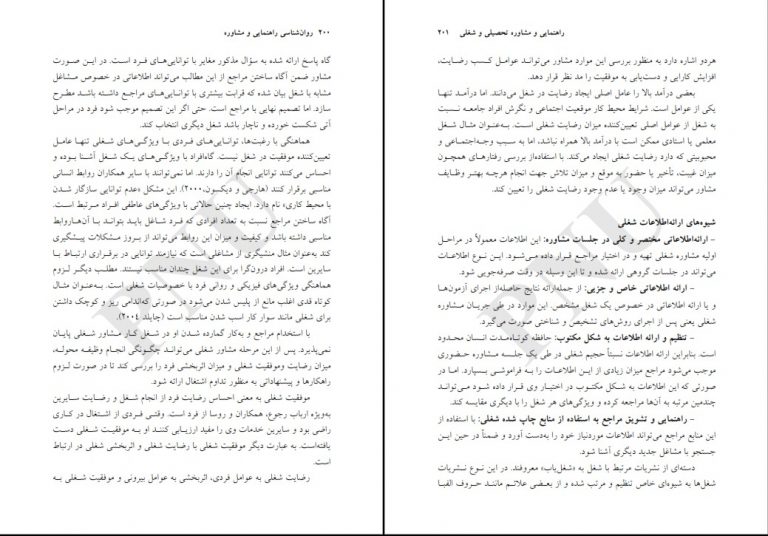 ۲۰۰ روان‌شناسی راهنمایی و مشاوره
گاه پاسخ ارائه شده به سؤال مذکور مغایر با توانایی‌های فرد است. در این صورت
مشاور ضمن آگاه ساختن مراجع از این مطالب می‌تواند اطلاعاتی در خصوص مشاغل
مشابه با شغل بیان شده که قرابت بیشتری با توانایی‌های مراجع داشته باشد مطرح
سازد. اما تصمیم نهایی با مراجع است. حتی اگر این تصمیم موجب شود فرد در مراحل
آتی شکست خورده و ناچار باشد شغل دیگری انتخاب کند.
هماهنگی با رغبت‌ها، توانایی‌های فردی با ویژگی‌های شغلی تنها عامل
تعیین‌کننده موفقیت در شغل نیست. گاه‌افراد با ویژگی‌های یک شغل آشنا بوده و
احساس می‌کنند توانایی انجام آن را دارند. اما نمی‌توانند با سایر همکاران روابط انسانی
مناسبی برقرار کنند (هارجی و دیکسون،۲۰۰۰). این مشکل «عدم توانایی سازگار شدن
با محیط کاری» نام دارد. ایجاد چنین حالاتی با ویژگی‌های عاطفی افراد مرتبط است.
آگاه ساختن مراجع نسبت به تعداد افرادی که فرد شاغل باید بتواند با آن‌هاروابط
مناسبی داشته باشد و کیفیت و میزان این روابط می‌تواند از بروز مشکلات پیشگیری
کند به‌عنوان مثال منشیگری از مشاغلی است که نیازمند توانایی در برقراری ارتباط با
سایرین است. افراد درون‌گرا برای این شغل چندان مناسب نیستند. مطلب دیگر لزوم
هماهنگی ویژگی‌های فیزیکی و روانی فرد با خصوصیات شغلی است. به‌عنوان مثال
کوتاه قدی اغلب مانع از پلیس شدن می‌شود در صورتی که‌اندامی ریز و کوچک داشتن
برای شغلی مانند سوار کار اسب شدن مناسب است (چایند، ۲۰۰۴).
با استخدام مراجع و به‌کار گمارده شدن او در شغل کار مشاور شغلی پایان
نمی‌پذیرد. پس از این مرحله مشاور شغلی می‌تواند چگونگی انجام وظیفه محوله،
میزان رضایت وموفقیت شغلی و میزان اثربخشی فرد را بررسی کند تا در صورت لزوم
راهکارها و پیشنهاداتی به منظور تداوم اشتغال ارائه شود.
موفقیت شغلی به معنی احساس رضایت فرد از انجام شغل و رضایت سایرین
به‌ویژه ارباب رجوع، همکاران و روسا از فرد است. وقتی فردی از اشتغال در کاری
راضی بود و سایرین خدمات وی را مفید ارزیابی کنند او به موفقیت شغلی دست
یافته‌است. به عبارت دیگر موفقیت شغلی با رضایت شغلی و اثربخشی شغلی در ارتباط
است.
رضایت شغلی به عوامل فردی، اثربخشی به عوامل بیرونی و موفقیت شغلی به
راهنمایی و مشاوره تحصیلی و شغلی ۲۰۱
هردو اشاره دارد به منظور بررسی این موارد مشاور می‌تواند عوامل کسب رضایت،
افزایش کارایی و دست‌یابی به موفقیت را مد نظر قرار دهد.
بعضی درآمد بالا را عامل اصلی ایجاد رضایت در شغل می‌دانند. اما درآمد تنها
یکی از عوامل است. شرایط محیط کار موقعیت اجتماعی و نگرش افراد جامعه نسبت
به شغل از عوامل اصلی تعیین‌کننده میزان رضایت شغلی است. به‌عنوان مثال شغل
معلمی یا استادی ممکن است با درآمد بالا همراه نباشد، اما به سبب وجه‌اجتماعی و
محبوبیتی که دارد رضایت شغلی ایجاد می‌کند. با استفاده‌از بررسی رفتارهای همچون
میزان غیبت، تأخیر یا حضور به موقع و میزان تلاش جهت انجام هرچه بهتر وظایف
مشاور می‌تواند میزان وجود یا عدم وجود رضایت شغلی را تعیین کند.
شیوه‌های ارائه‌اطلاعات شغلی
- ارائه‌اطلاعاتی مختصر و کلی در جلسات مشاوره: این اطلاعات معمولاً در مراحل
اولیه مشاوره شغلی تهیه و در اختیار مراجع قرار داده می‌شود. این نوع اطلاعات
می‌تواند در جلسات گروهی ارائه شده و تا این وسیله در وقت صرفه‌جویی شود.
- ارائه اطلاعاتی خاص و جزیی: از جمله‌ارائه نتایج حاصله‌از اجرای آزمون‌ها
و یا ارائه اطلاعاتی در خصوص یک شغل مشخص. این موارد در طی جریان مشاوره
شغلی یعنی پس از اجرای روش‌های تشخیص و شناختی صورت می‌گیرد.
- تنظیم و ارائه اطلاعات به شکل مکتوب: حافظه کوتاه‌مدت انسان محدود
است. بنابراین ارائه اطلاعات نسبتاً حجیم شغلی در طی یک جلسه مشاوره حضوری
موجب می‌شود مراجع میزان زیادی از این اطلاعات را به فراموشی بسپارد. اما در
صورتی که این اطلاعات به شکل مکتوب در اختیار وی قرار داده شود می‌تواند
چندمین مرتبه به آن‌ها مراجعه کرده و ویژگی‌های هر شغل را با دیگری مقایسه کند.
- راهنمایی و تشویق مراجع به استفاده از منابع چاپ شده شغلی: با استفاده از
این منابع مراجع می‌تواند اطلاعات موردنیاز خود را به‌دست آورد و ضمناً در حین این
جستجو با مشاغل جدید دیگری آشنا شود.
دسته‌ای از نشریات مرتبط با شغل به «شغل‌یاب» معروفند. در این نوع نشریات
شغل‌ها به شیوه‌ای خاص تنظیم و مرتب شده و از بعضی علائم مانند حروف الفبا
PNU
PNU